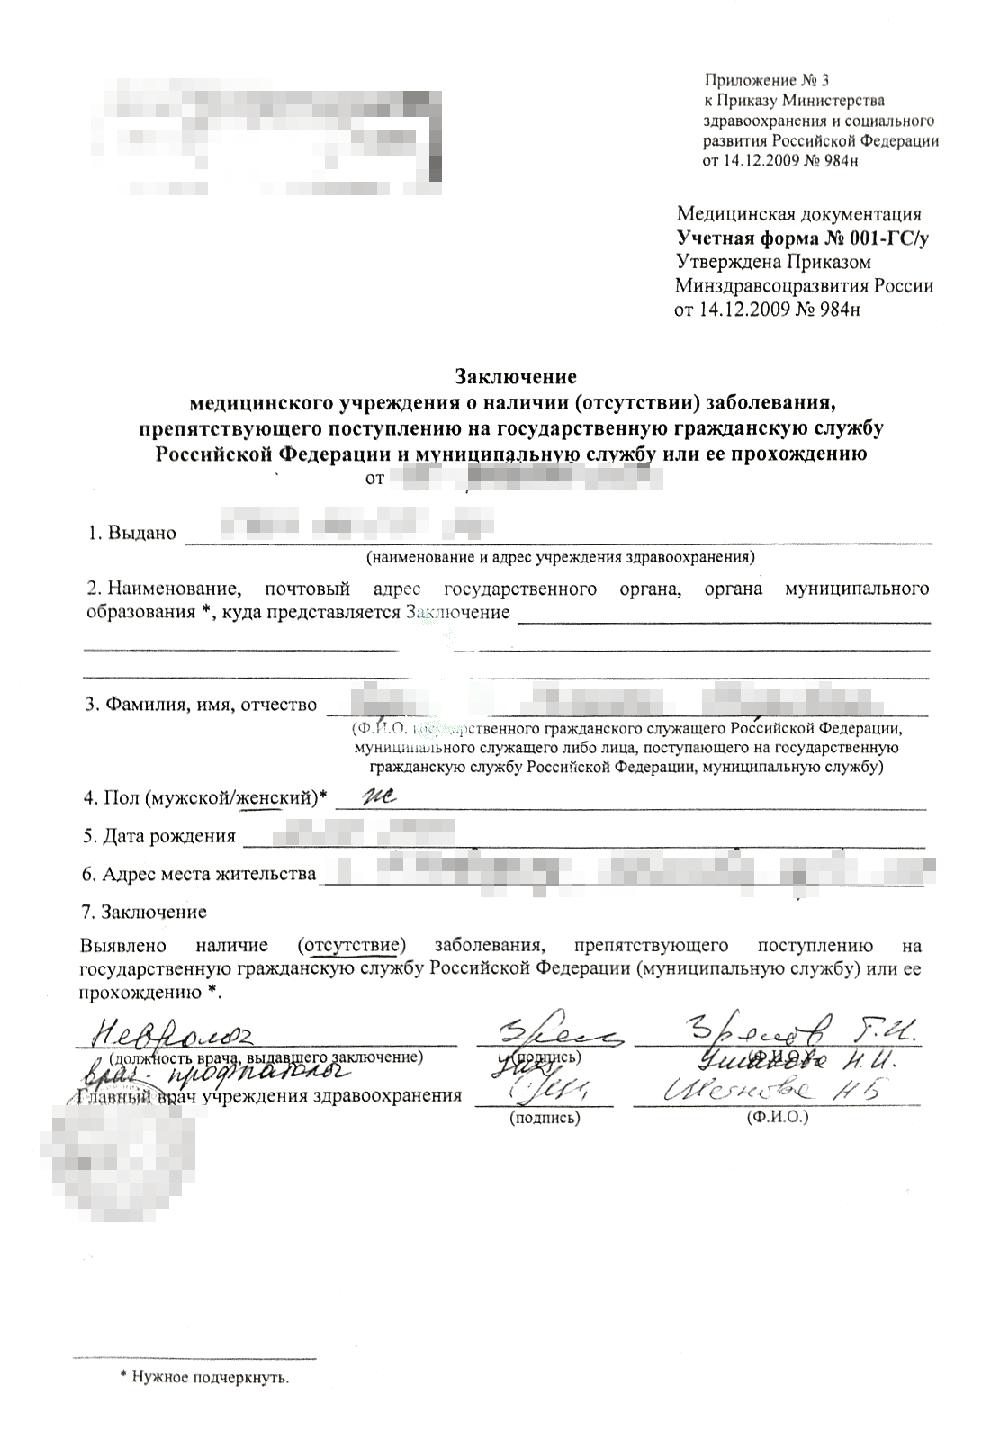 Приложение № 3
к Приказу Министерства
здравоохранения и социального
развития Российской Федерации
от 14.12.2009 № 984н
Медицинская документация
Учетная форма № 001-ГС/у
Утверждена Приказом
Минздравсоцразвития России
от 14.12.2009 № 984н
Заключение
медицинского учреждения о наличии (отсутствии) заболевания,
препятствующего поступлению на государственную гражданскую службу
Российской Федерации и муниципальную службу или ее прохождению
от
1. Выдано
(наименование и адрес учреждения здравоохранения)
2. Наименование, почтовый адрес государственного органа, органа муниципального
образования *, куда представляется Заключение
3. Фамилия, имя, отчество
(Ф.И.О. государственного гражданского служащего Российской Федерации,
муниципального служащего либо лица, поступающего на государственную
гражданскую службу Российской Федерации, муниципальную службу)
4. Пол (мужской/женский)* же
5. Дата рождения
6. Адрес места жительства
7. Заключение
Выявлено наличие (отсутствие) заболевания, препятствующего поступлению на
государственную гражданскую службу Российской Федерации (муниципальную службу) или ее
прохождению *.
Невролог Г.И.
(должность врача, выдавшего заключение) (подпись) (Ф.И.О.)
врач-профпатолог Н.И.
Главный врач учреждения здравоохранения Н Б
(подпись) (Ф.И.О.)
* Нужное подчеркнуть.